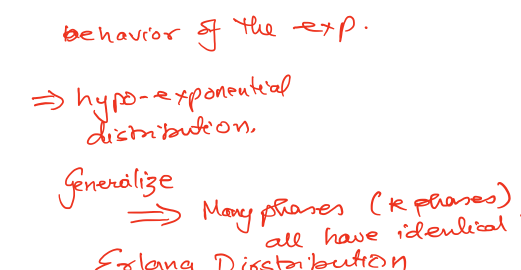 behavior of the exp.
⇒ hypo-exponential
distribution.
Generalize
⇒ Many phases (k phases)
all have identical
Erlang Disstribution